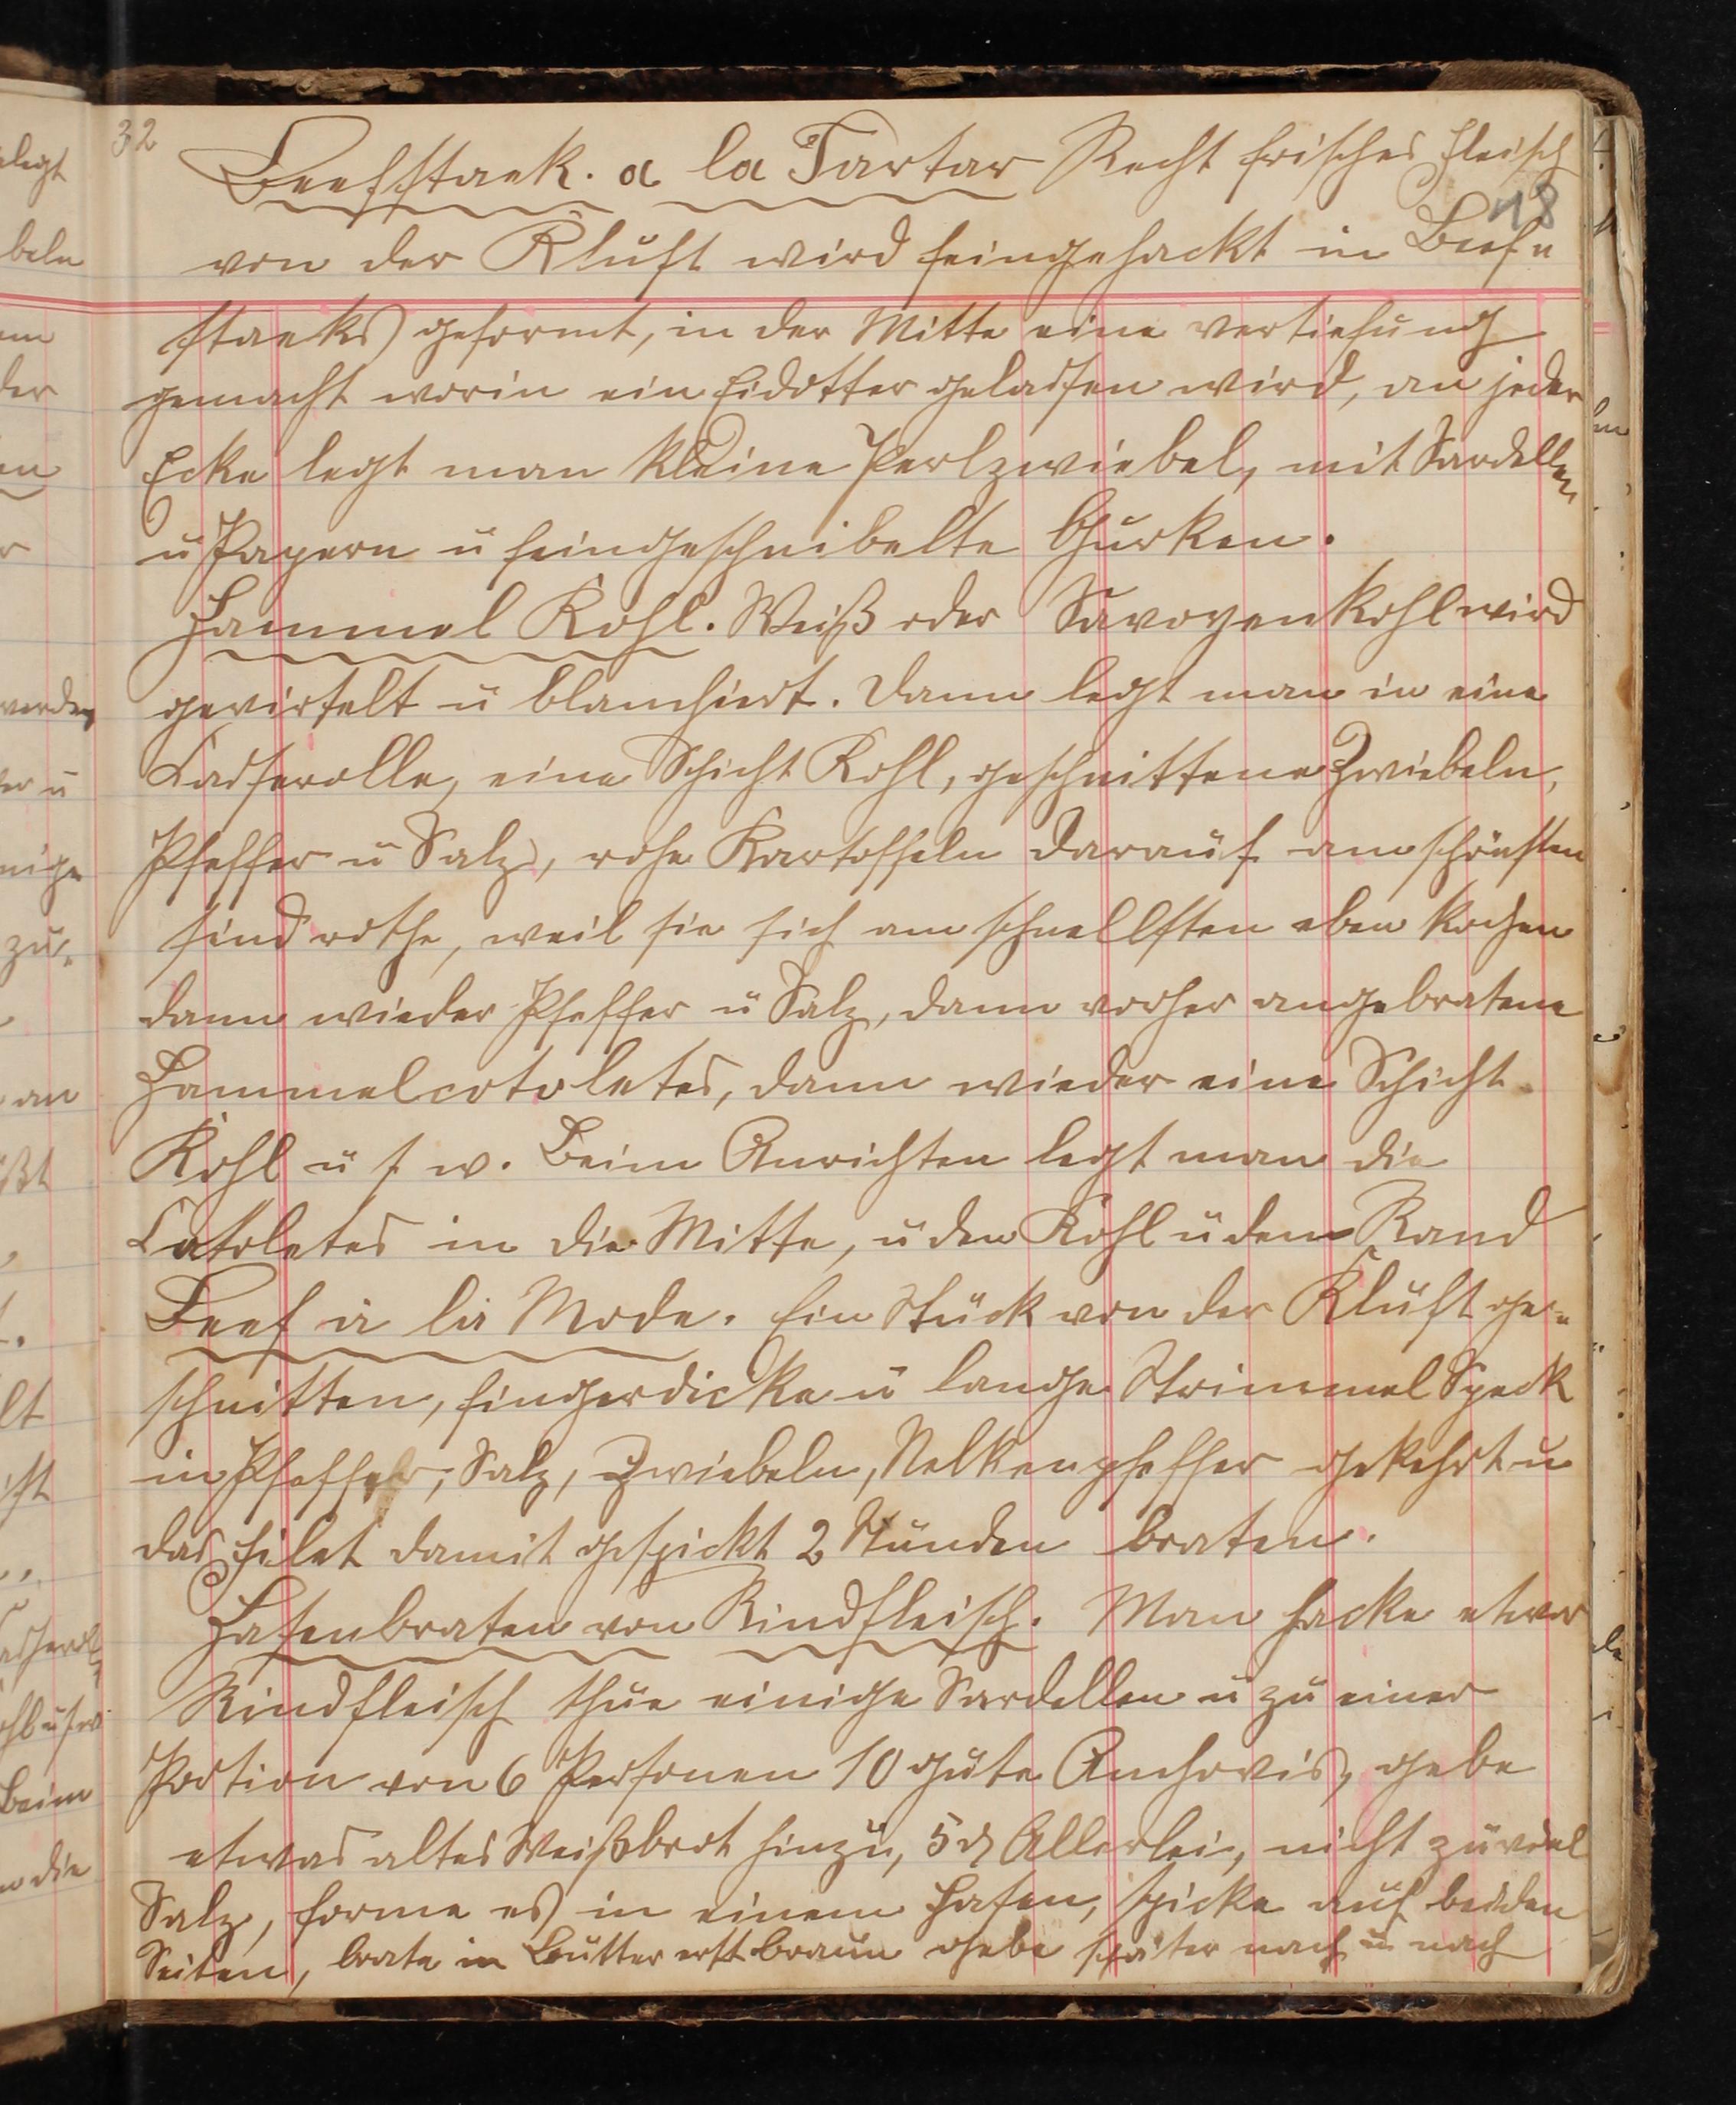 32
Beefstaek. a la Tartar Recht frisches Fleisch
18
von der Kluft wird feingehackt in Beef=
staeks geformt, in der Mitte eine vertiefung
gemacht worin ein Eidotter gelassen wird, an jeder
Ecke legt man kleine Perlzwiebel, mit Sardellen
u Kapern u feingeschnibelte Gurken.
Hammel Kohl. Weiß oder Savoyenkohl wird
gevirtelt u blanchiert. Dann legt man in eine
Casserolle, eine Schicht Kohl, geschnittene Zwiebeln,
Pfeffer u Salz, rohe Kartoffeln darauf am schönsten
sind rothe, weil sie sich am schnellsten eben kochen
dann wieder Pfeffer u Salz, dann vorher angebratene
Hammelcotoletes, dann wieder eine Schicht
Kohl u s w. Beim Anrichten legt man die
Cotoletes in die Mitte, u den Kohl u dem Rand
Beef a la Mode. Ein Stück von der Kluft ge=
schnitten, fingerdicke u lange Strimmel Speck
in Pfeffer, Salz, Zwiebeln, Nelkenpfeffer gekehrt u
das Filet damit gespickt 2 Stunden braten.
Hasenbraten von Rindfleisch. Man hacke etwas
Rindfleisch thue einige Sardellen u zu einer
Portion von 6 Personen 10 gute Anchovis, gebe
etwas altes Weißbrot hinzu, 5 Allerlei, nicht zuviel
Salz, forme es in einem Hasen, spicke auf beiden
Seiten, brate in Butter erst braun gebe später nach u nach